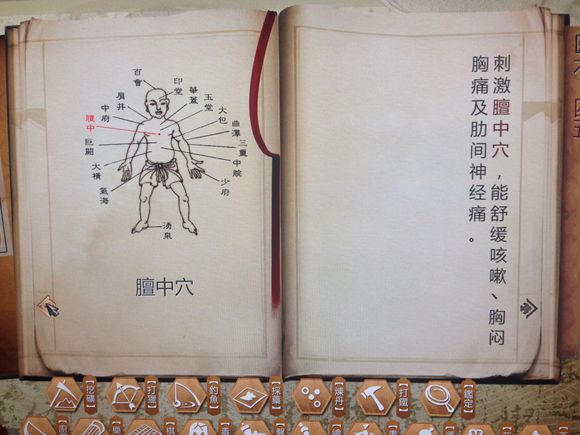 百會
印堂
華蓋
玉堂
大包
曲澤
三里
中脘
少府
湧泉
肩井
中府
膻中
巨闕
大橫
氣海
膻中穴
刺激膻中穴，能舒缓咳嗽、胸闷
胸痛及肋间神经痛。
【挖礦】
【打獵】
【釣魚】
【採藥】
【煉丹】
【打鐵】
【鑑定】